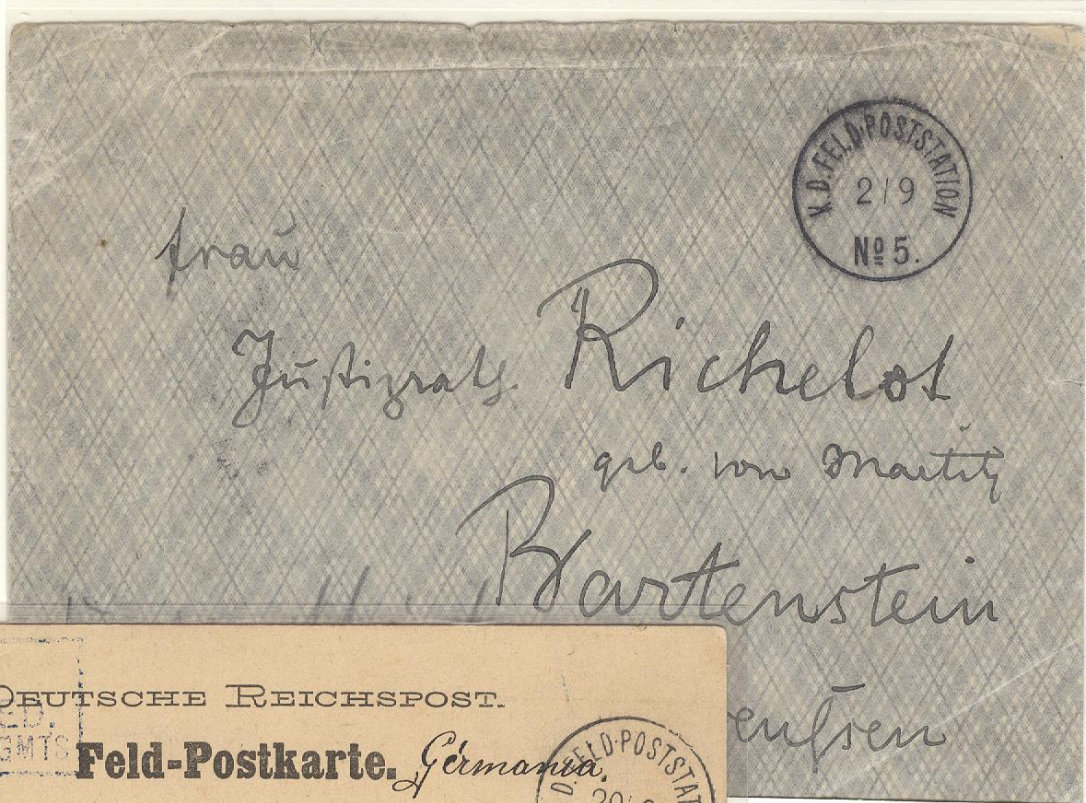 K.D. FELD-POSTSTATION
2/9
No 5.
Frau
Justizrath Richelot
geb. von Martitz
Bartenstein
eußen
DEUTSCHE REICHSPOST.
Feld-Postkarte. Germania.
GMTS
D. FELD-POSTSTAT